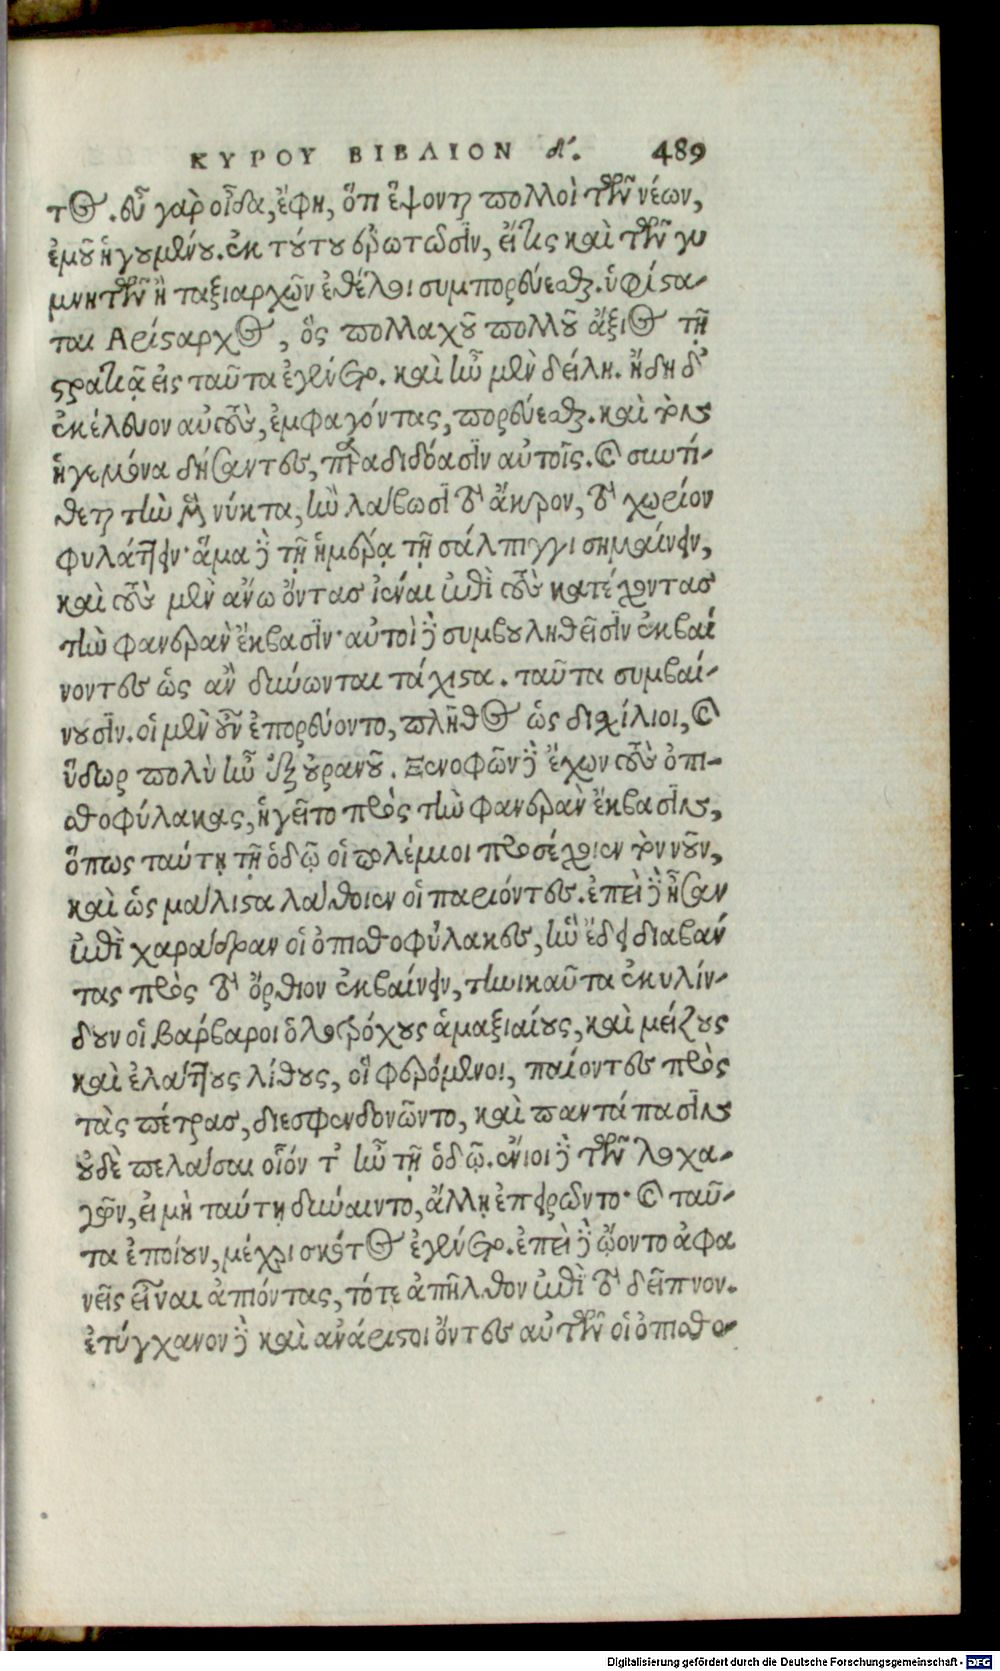 ΚΥΡΟΥ ΒΙΒΛΙΟΝ δ'. 489
τος. εὖ γὰρ οἶδα, ἔφη, ὅτι ἕψονται πολλοὶ τῶν νέων,
ἐμοῦ ἡγουμένου. ἐκ τούτου ἐρωτῶσιν, εἴ τις καὶ τῶν γυ
μνητῶν ἢ ταξιαρχῶν ἐθέλοι συμπορεύεσθαι. ὑφίστα-
ται Αρίσταρχος, ὃς πολλαχοῦ πολλοῦ ἄξιος τῇ
στρατιᾷ εἰς ταῦτα ἐγένετο. καὶ ἦν μὲν δείλη. ἤδη δ'
ἐκέλευον αὐτοὺς, ἐμφαγόντας, πορεύεσθαι. καὶ τὸν
ἡγεμόνα δήσαντες, παραδιδόασιν αὐτοῖς. καὶ συντί-
θεται τὴν μὲν νύκτα, ἢν λάβωσι τὸ ἄκρον, τὸ χωρίον
φυλάττειν· ἅμα δὲ τῇ ἡμέρᾳ τῇ σάλπιγγι σημαίνειν,
καὶ τοὺς μὲν ἄνω ὄντας ἰέναι ἐπὶ τοὺς κατέχοντας
τὴν φανερὰν ἔκβασιν· αὐτοὶ δὲ συμβουληθεῖσιν ἐκβαί
νοντες ὡς ἂν δύνωνται τάχιστα. ταῦτα συμβαί-
νουσιν. οἱ μὲν οὖν ἐπορεύοντο, πλῆθος ὡς δισχίλιοι, καὶ
ὕδωρ πολὺ ἦν ἐξ οὐρανοῦ. Ξενοφῶν δὲ ἔχων τοὺς ὀπι-
σθοφύλακας, ἡγεῖτο πρὸς τὴν φανερὰν ἔκβασιν,
ὅπως ταύτῃ τῇ ὁδῷ οἱ πολέμιοι προσέχοιεν τὸν νοῦν,
καὶ ὡς μάλιστα λάθοιεν οἱ παριόντες. ἐπεὶ δὲ ἦσαν
ἐπὶ χαράδραν οἱ ὀπισθοφύλακες, ἣν ἔδει διαβάν
τας πρὸς τὸ ὄρθιον ἐκβαίνειν, τηνικαῦτα ἐκυλίν-
δουν οἱ βάρβαροι ὁλοιτρόχους ἁμαξιαίους, καὶ μείζους
καὶ ἐλάττους λίθους, οἳ φερόμενοι, παίοντες πρὸς
τὰς πέτρας, διεσφενδονῶντο, καὶ παντάπασιν
οὐδὲ πελάσαι οἷόν τ' ἦν τῇ ὁδῷ. ἔνιοι δὲ τῶν λοχα-
γῶν, εἰ μὴ ταύτῃ δύναιντο, ἄλλῃ ἐπειρῶντο· καὶ ταῦ-
τα ἐποίουν, μέχρι σκότος ἐγένετο. ἐπεὶ δὲ ᾤοντο ἀφα
νεῖς εἶναι ἀπιόντας, τότε ἀπῆλθον ἐπὶ τὸ δεῖπνον.
ἐτύγχανον δὲ καὶ ἀνάριστοι ὄντες αὐτῶν οἱ ὀπισθο-
Digitalisierung gefördert durch die Deutsche Forschungsgemeinschaft - DFG